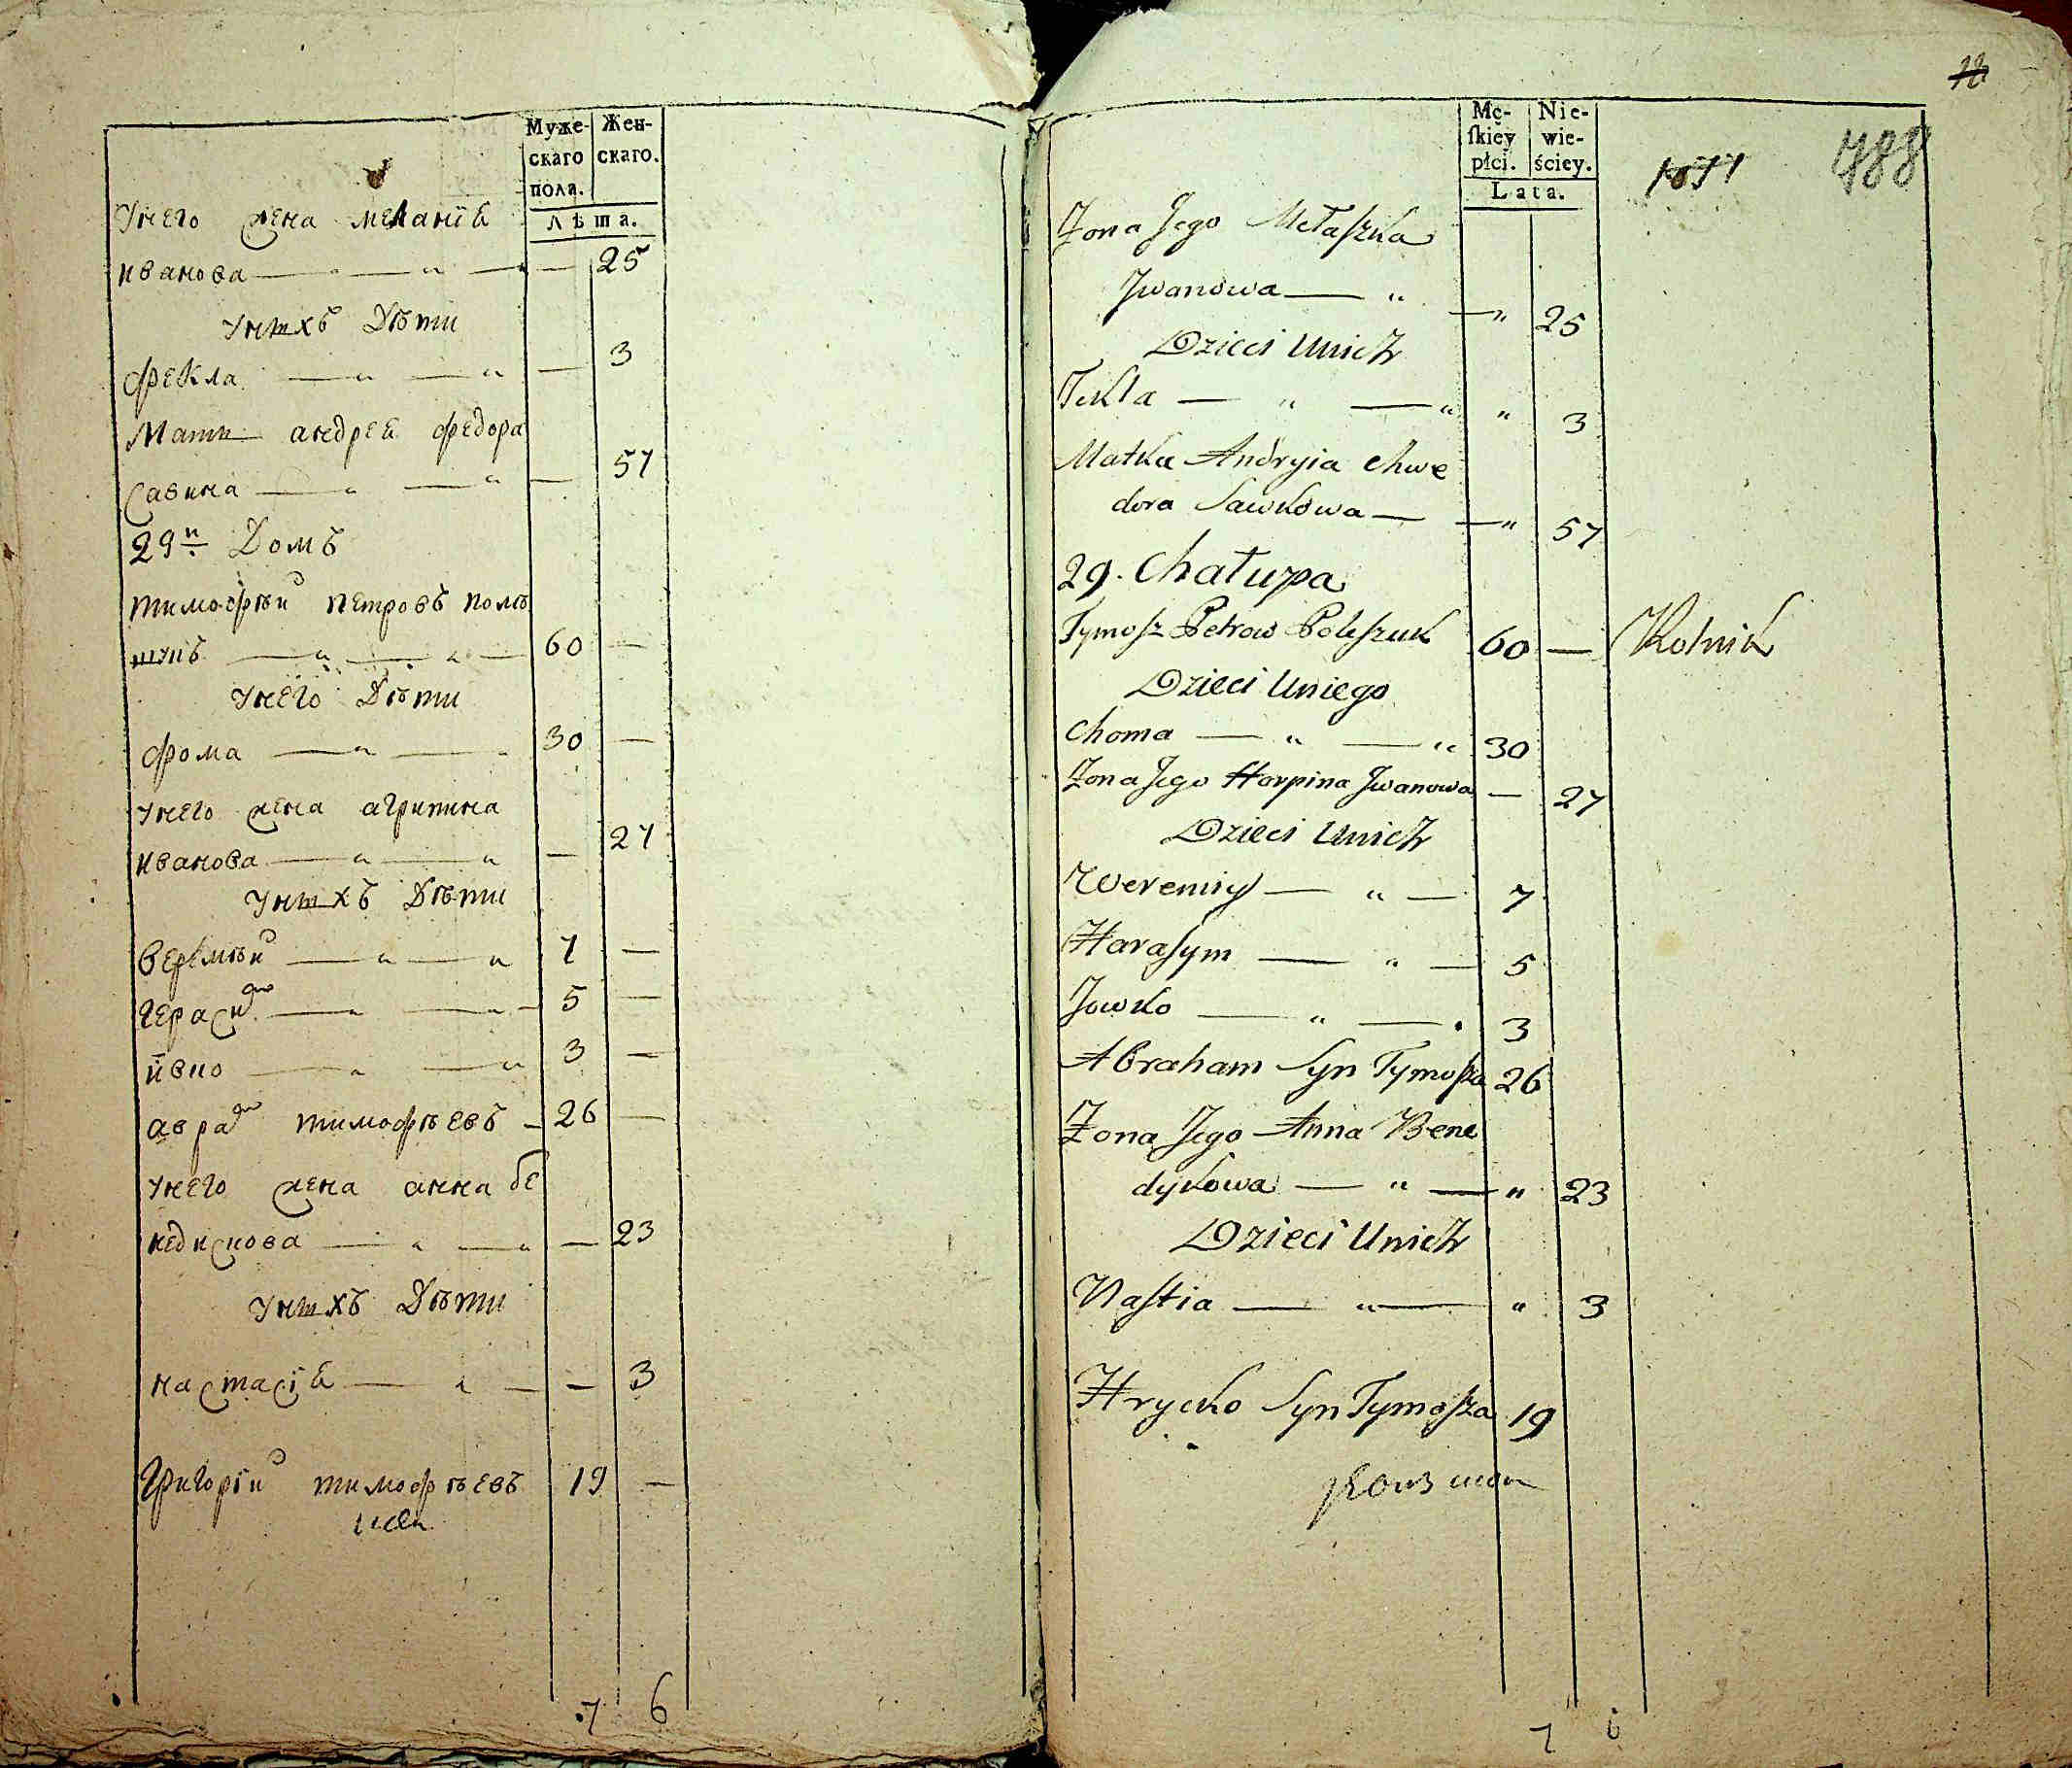 Муже-
скаго
пола.
Жен-
скаго.
Лѣта.
унего жена меланіѣ
иванова — „ — „ — — 25
унихъ Дѣти
фекла — „ — „ — 3
Мать андрея федора
савина — „ — „ — 57
29й Домъ
тимофѣй петровъ полѣ
шукъ — „ — „ — 60 —
унего Дѣти
фома — „ — 30 —
унего жена агрипина
иванова — „ — „ — 27
унихъ Дѣти
веремѣй — „ — „ 7 —
герасим — „ — „ — 5 —
ївко — „ — „ 3 —
аврам тимофѣевъ — 26 —
унего жена анна бе
недискова — „ — „ — 23
унихъ Дѣти
настасія — „ — — 3
григорій тимофѣевъ 19 —
7 6
18
Mę-
skiey
płci.
Nie-
wie-
ściey.
Lata.
788
Żona Jego Mełaszka
Jwanowa — „ — „ 25
Dzieci Unich
Tekla — „ — „ „ 3
Matka Andryia Chwe
dora Sawkowa — — „ 57
29. Chałupa
Tymosz Petrow Poleszuk 60 — Rolnik
Dzieci Uniego
Choma — „ — „ 30
Żona Jego Harpina Jwanowa — 27
Dzieci Unich
Weremiy — „ — 7
Harasym — „ — 5
Jowko — „ — 3
Abraham Syn Tymosza 26
Żona Jego Anna Bene
dykowa — „ — „ 23
Dzieci Unich
Nastia — „ — „ 3
Hrycko Syn Tymosza 19
7 6